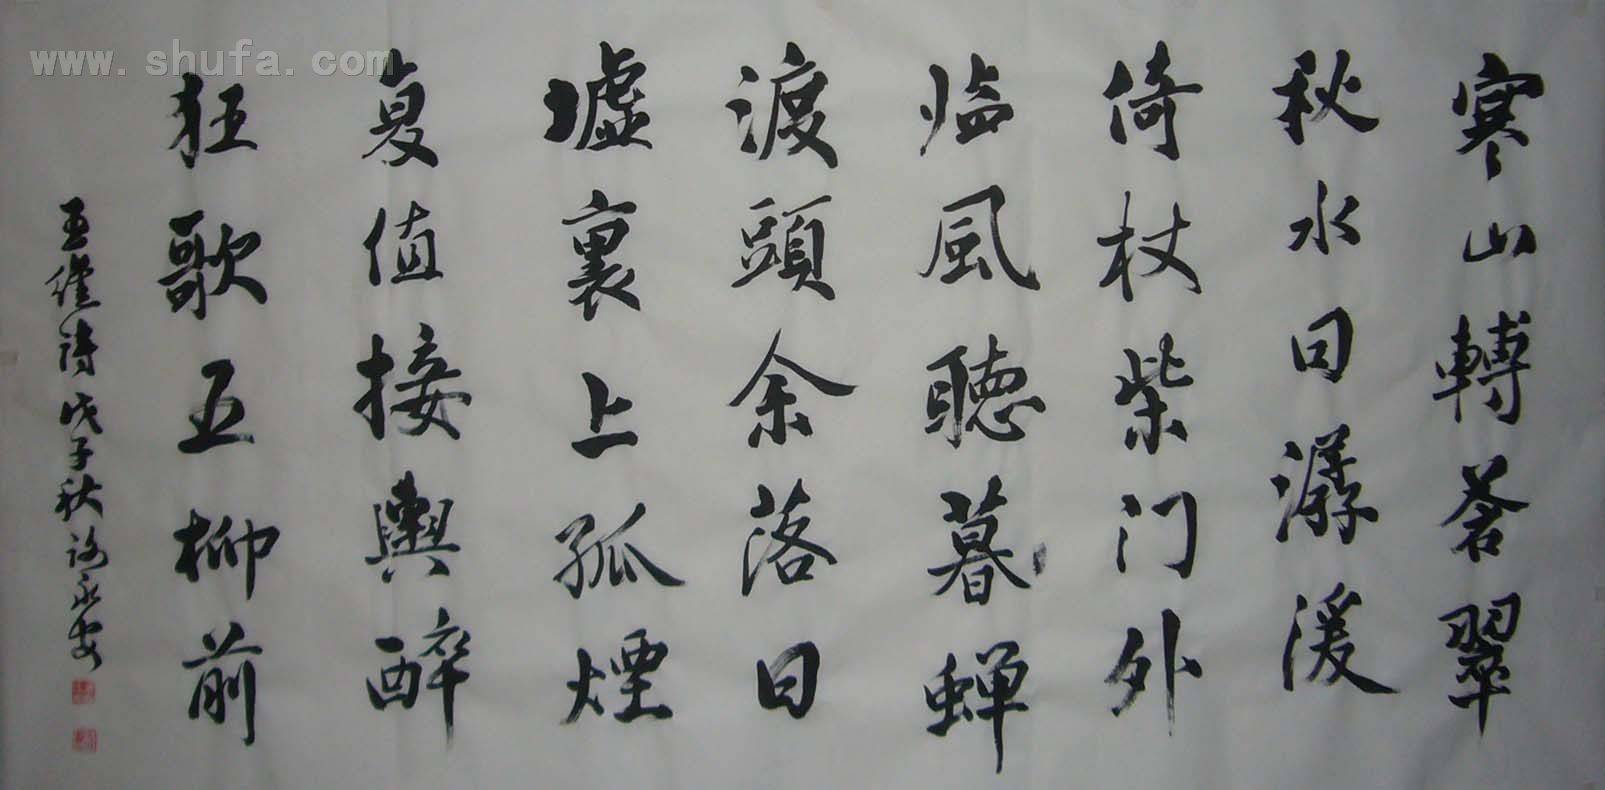 寒山轉蒼翠
秋水日潺湲
倚杖柴门外
临風聴暮蝉
渡頭余落日
墟裏上孤煙
复值接輿醉
狂歌五柳前
王維诗戊子秋洛永安
www.shufa.com